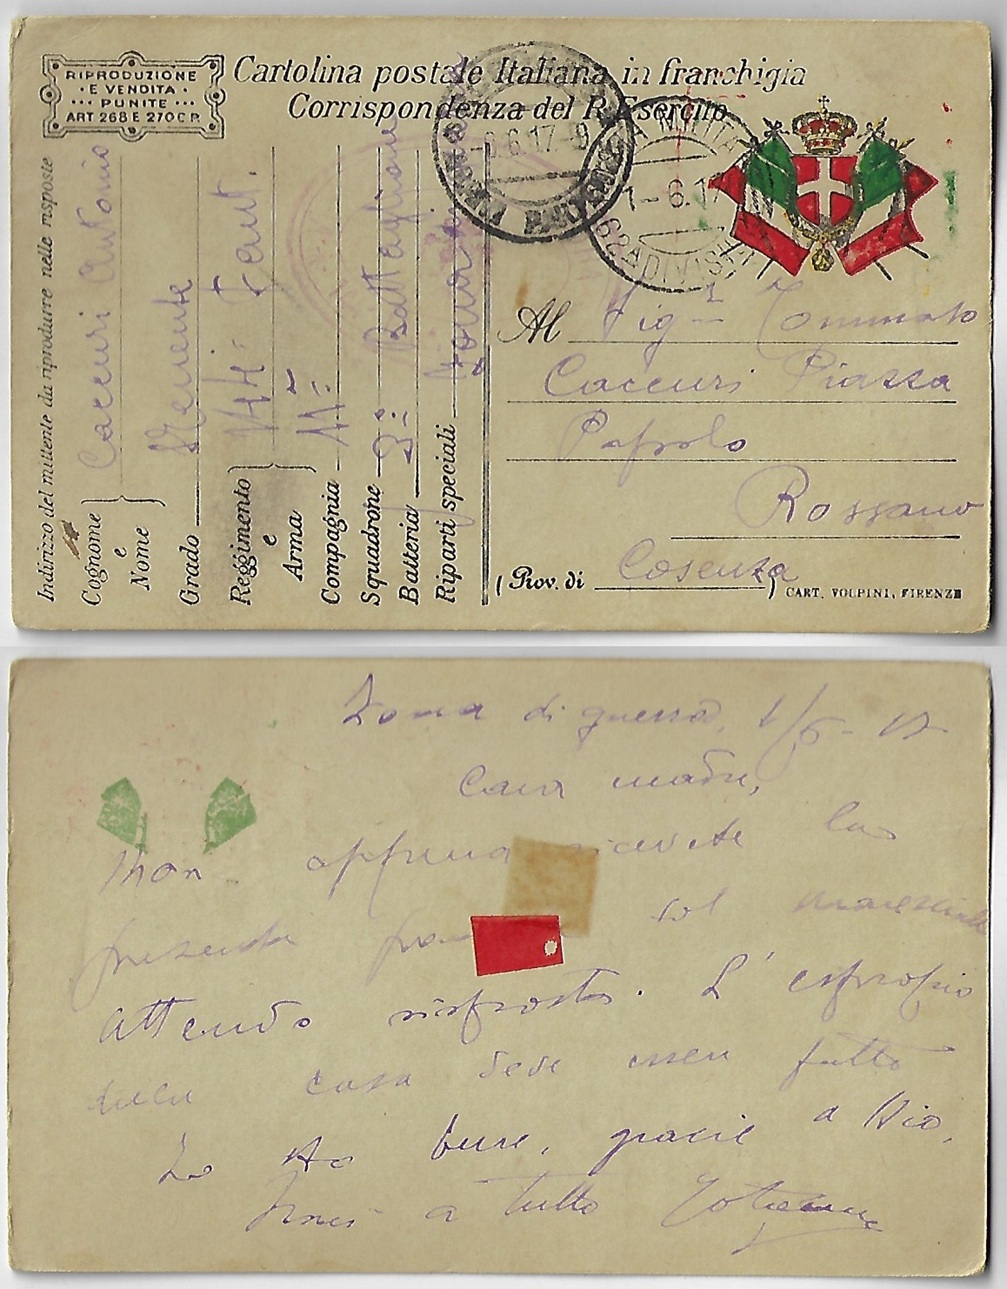 RIPRODUZIONE
E VENDITA
PUNITE
ART 268 E 270 C P.
Cartolina postale Italiana in franchigia
Corrispondenza del R. Esercito
-6.17-
1-6.17
62 A DIVIS
Indirizzo del mittente da riprodurre nelle risposte
Cognome e Nome Caccuri Antonio
Grado
Reggimento e Arma 144: Fant.
Compagnia 11=
Squadrone
Batteria 3: Battaglione
Riparti speciali
Al Sig. Tommaso
Caccuri Piazza
Popolo
Rossano
(Prov. di Cosenza)
CART. VOLPINI, FIRENZE
Zona di guerra, 1/6-17
Cara madre,
Non appena ricevete la
presente col maresciallo
attendo risposta. L'esproprio
della casa deve esser fatto
Io sto bene, grazie a Dio.
Baci a tutti